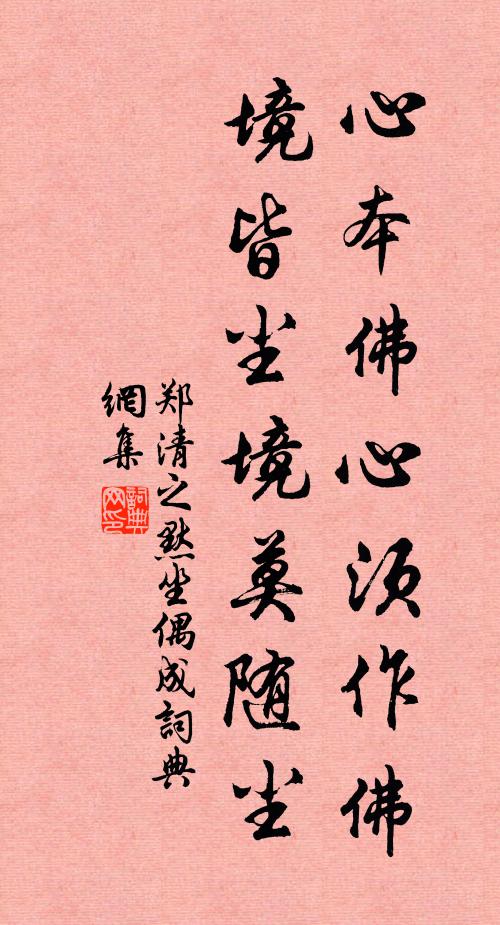 心本佛心须作佛
境皆尘境莫随尘
郑清之默坐偶成詞典
網集
詞典
网印